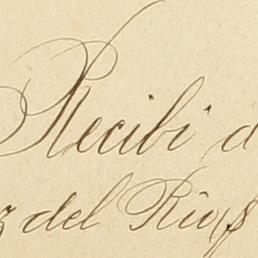 Recibi d
z del Rio